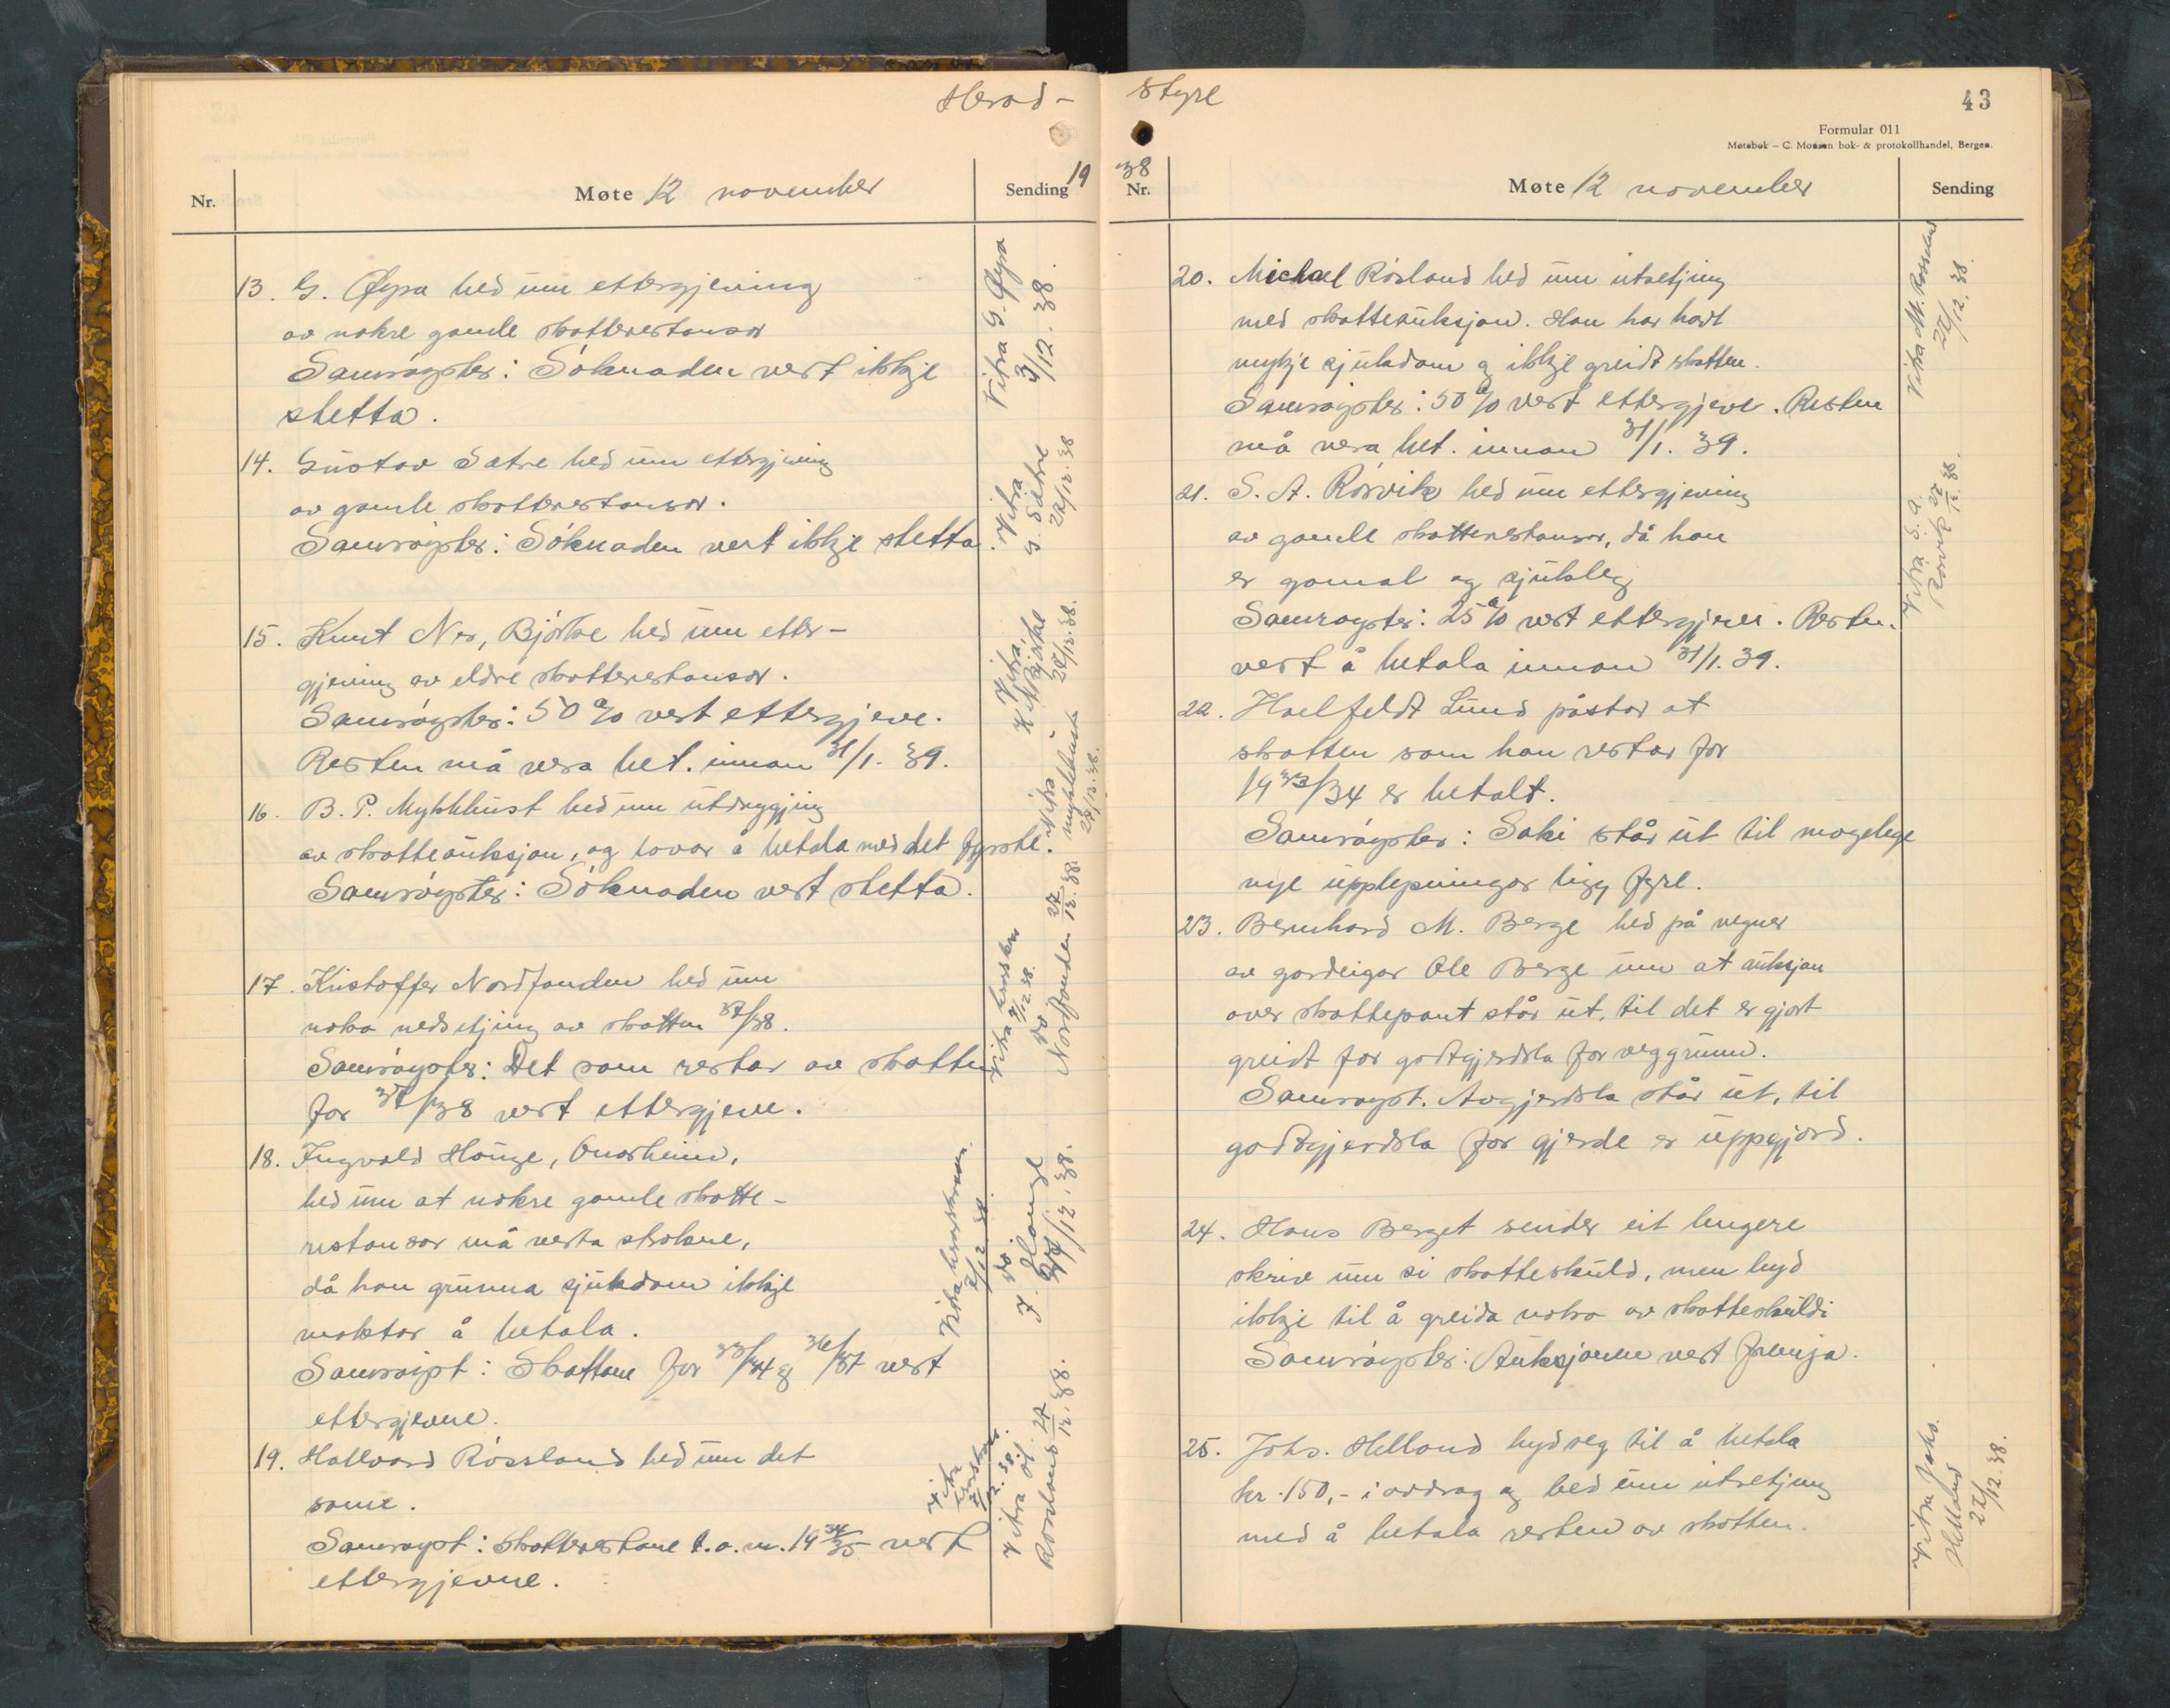 Herad-
Møte 12 november
Nr.
Sending 19
13. G. Øyra bed um ettergjeving
av nokre gamle skatterestansar
Samrøystes: Søknaden vert ikkje
stetta.
Vitra G. Øyra
3/12. 38.
14. Gustav Sætre bed um ettergjeving
av gamle skatterestansar.
Samrøystes: Søknaden vert ikkje stetta.
Vitra
G. Sætre
22/12. 38
15. Knut Nes, Bjørke bed um etter-
gjeving av eldre skatterestansar.
Samrøystes: 50 % vert ettergjeve.
Resten må vera bet. innan 31/1. 39.
Vitra
K. N. Bjørke
22/12. 38.
16. B. P. Myklebust bed um utdryging
av skatteauksjon, og lovar å betala med det fyrste.
Samrøystes: Søknaden vert stetta.
Vitra
Myklebust
27/12. 38.
17. Kristoffer Nordfonden bed um
noko nedsetjing av skatten 37/38.
Samrøystes: Det som restar av skatten
for 37/38 vert ettergjeve.
Vitra heradskass
2/12 38.
do.
Nordfonden 27/12. 38.
18. Ingvald Hauge, Onarheim,
bed um at nokre gamle skatte-
restansar må verta strokne,
då han grunna sjukdom ikkje
maktar å betala.
Samrøyst: Skattane for 33/34 og 36/37 vert
ettergjevne.
Vitra heradskassen
2/12 38.
do.
I. Hauge
27/12. 38.
19. Hallvard Røssland bed um det
same.
Samrøyst: Skatterestane t.o.m. 19 34/35 vert
ettergjevne.
Vitra
heradskass.
2/12. 38.
Vitra H.
Rossland 27/12. 38.
Styre
43
Formular 011
Møtebok – C. Monsen bok- & protokollhandel, Bergen.
38
Nr.
Møte 12 november
Sending
20. Michael Røsland bed um utsetjing
med skatteauksjon. Han har havt
mykje sjukdom og ikkje greidt skatten.
Samrøystes: 50 % vert ettergjeve. Resten
må vera bet. innan 31/1. 39.
Vitra M. Rossland
22/12. 38.
21. S. A. Rørvik bed um ettergjeving
av gamle skatterestansar, då han
er gamal og sjukleg
Samrøystes: 25 % vert ettergjeve. Resten
vert å betala innan 31/1. 39.
Vitra S. A.
Rørvik 27/12. 38.
22. Haelfeldt Lund påstar at
skatten som han restar for
19 33/34 er betalt.
Samrøystes: Saki står ut til mogelege
nye upplysningar ligg fyre.
23. Bernhard M. Berge bed på vegner
av gardeigar Ole Berge um at auksjon
over skattepant står ut, til det er gjort
greidt for godtgjerdsla for veggrunn.
Samrøyst. Avgjerdsla står ut, til
godtgjerdsla for gjerde er uppgjord.
24. Hans Berget sender eit lengere
skriv um si skatteskuld, men byd
ikkje til å greida noko av skatteskuldi
Samrøystes: Auksjonen vert fremja.
25. Johs. Helland byd seg til å betala
kr. 150,- i avdrag og bed um utsetjing
med å betala resten av skatten.
Vitra Johs.
Helland
22/12. 38.